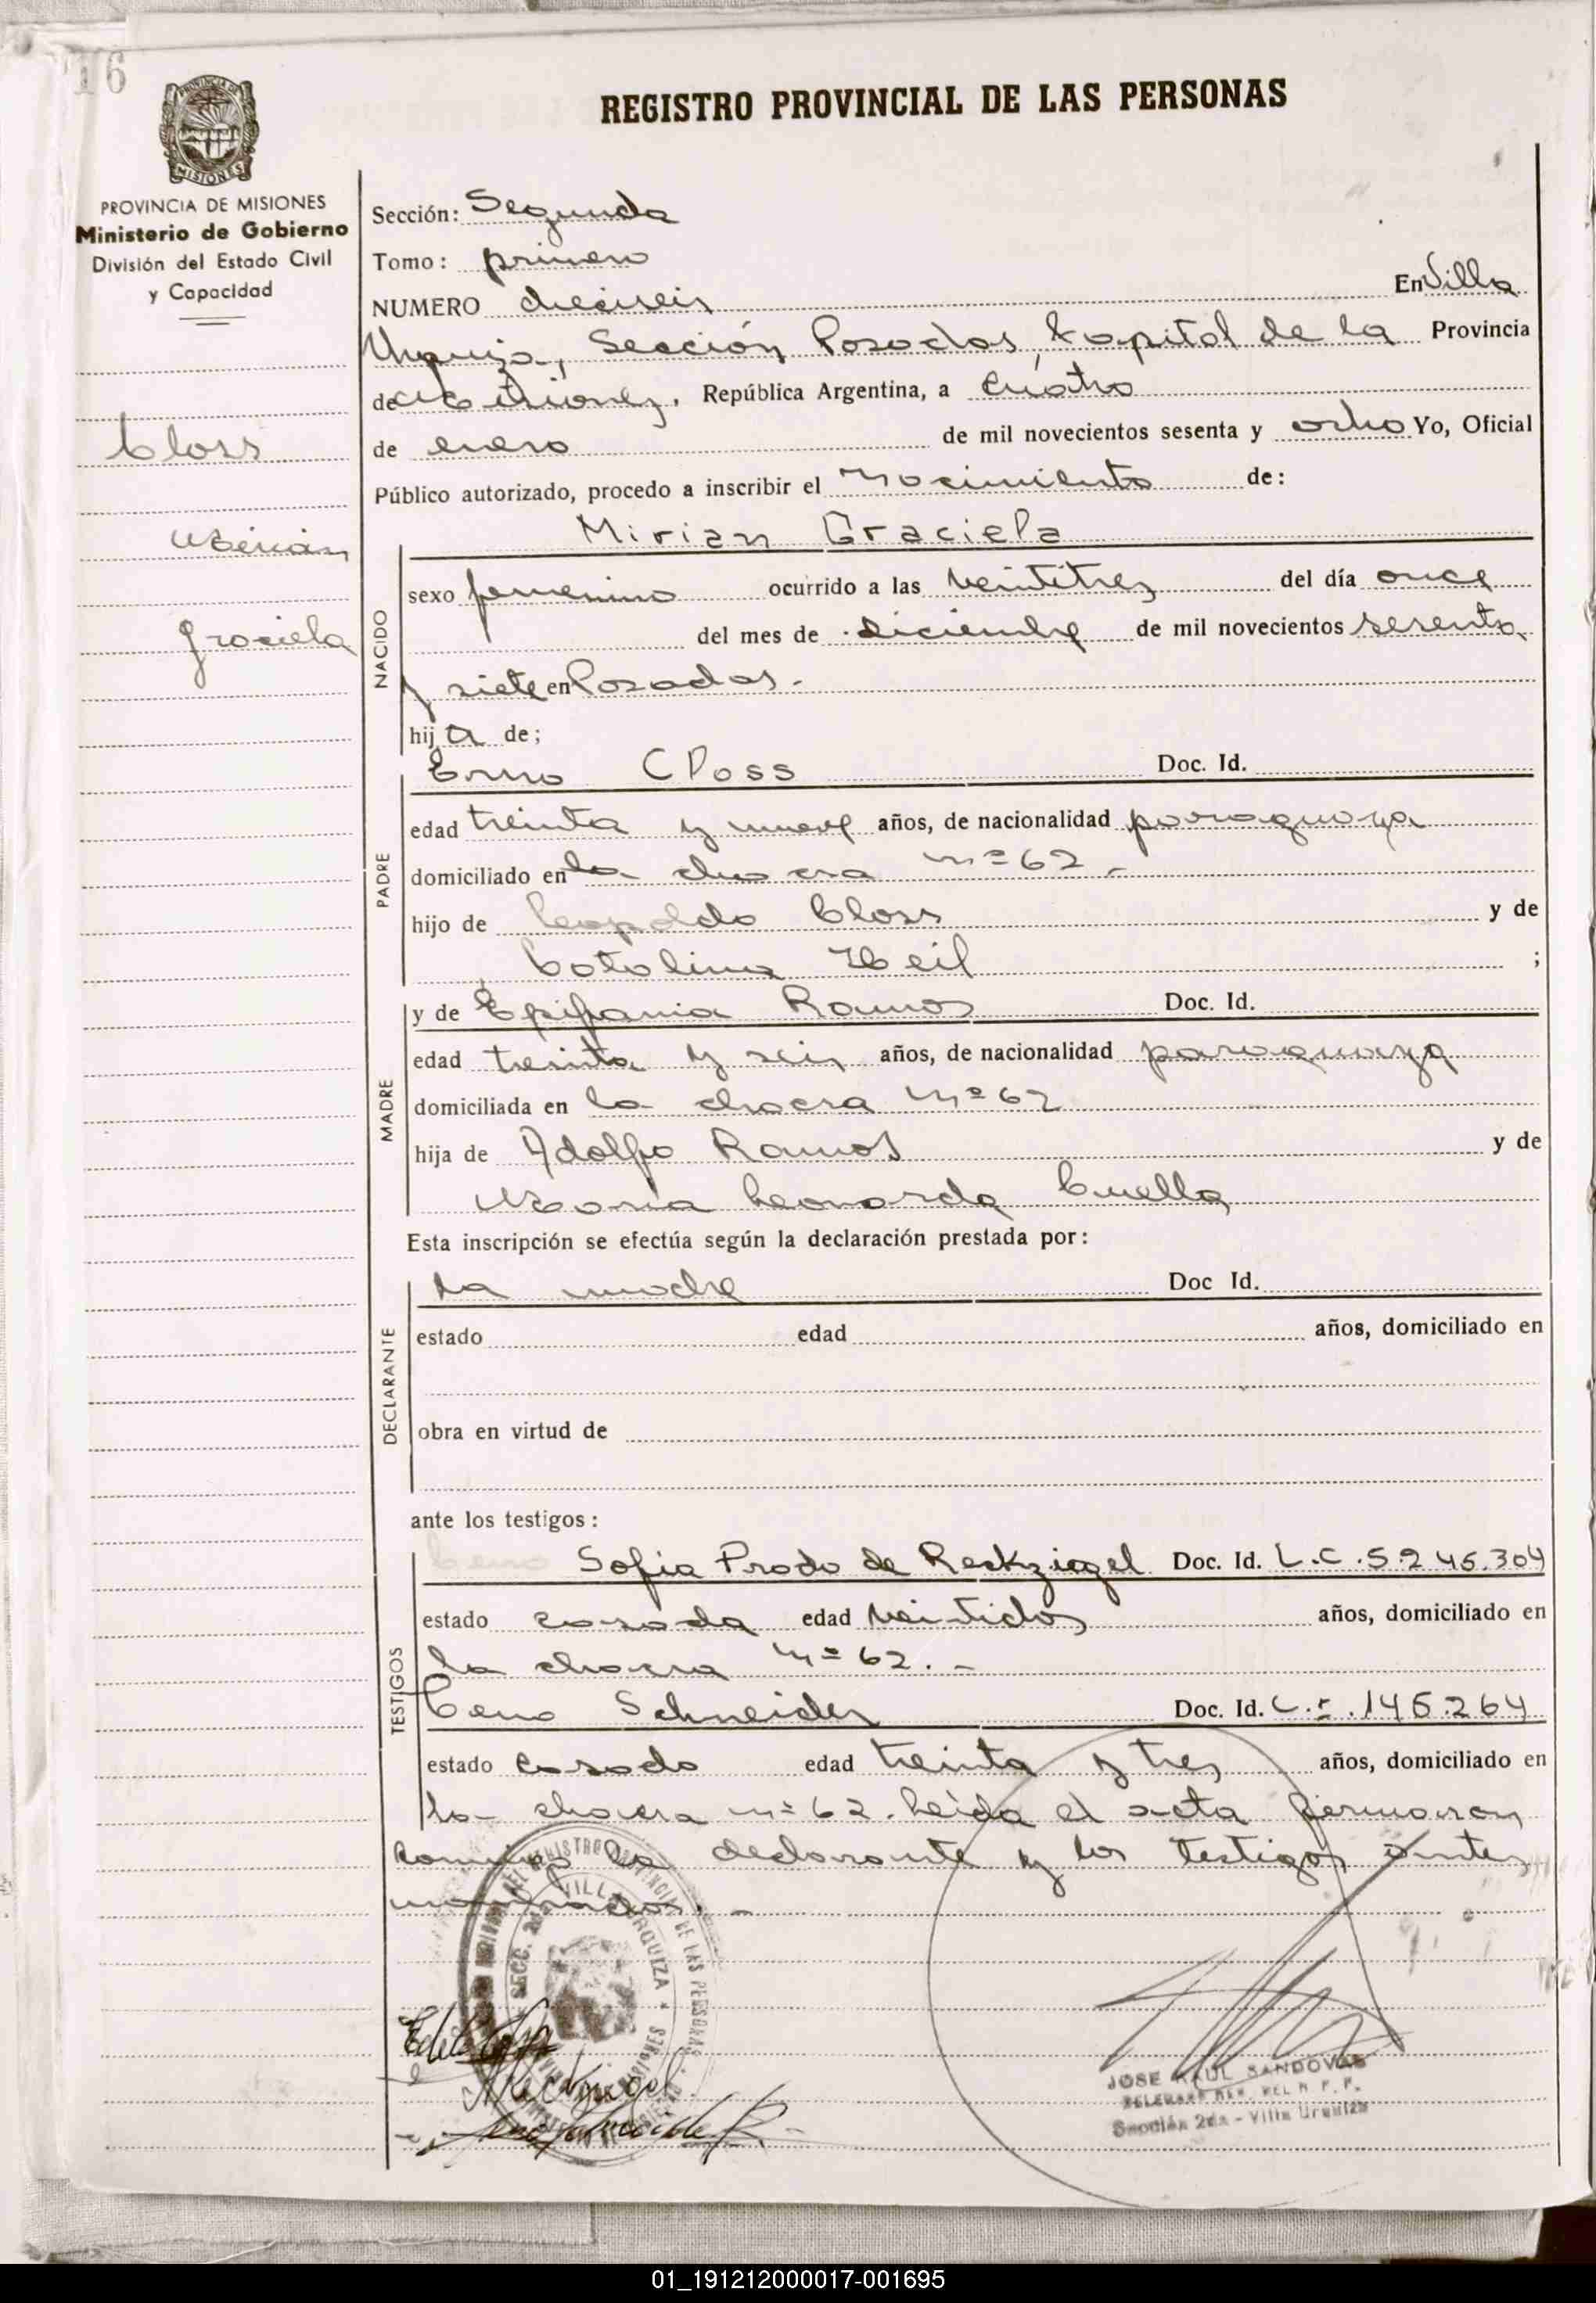 16
REGISTRO PROVINCIAL DE LAS PERSONAS
PROVINCIA DE MISIONES
MISIONES
PROVINCIA DE MISIONES
Ministerio de Gobierno
División del Estado Civil
y Capacidad
Closs
Mirian
Graciela
Sección: Segunda
Tomo: primero
NUMERO dieciseis En Villa
Urquiza, Sección Posadas, Capital de la Provincia
de Misiones, República Argentina, a cuatro
de enero de mil novecientos sesenta y ocho Yo, Oficial
Público autorizado, procedo a inscribir el nacimiento de:
Mirian Graciela
NACIDO
sexo femenino ocurrido a las veintitres del día once
del mes de diciembre de mil novecientos sesenta
y siete en Posadas.-
hij a de;
PADRE
Erno Closs Doc. Id.
edad treinta y nueve años, de nacionalidad paraguaya
domiciliado en la chacra nº 62.-
hijo de Leopoldo Closs y de
Catalina Heil ;
MADRE
y de Epifania Ramos Doc. Id.
edad treinta y seis años, de nacionalidad paraguaya
domiciliada en la chacra nº 62
hija de Adolfo Ramos y de
Maria Leonarda Cuella
Esta inscripción se efectúa según la declaración prestada por:
DECLARANTE
La madre Doc Id.
estado edad años, domiciliado en
obra en virtud de
ante los testigos:
TESTIGOS
Sofia Prado de Reckziegel Doc. Id. L.C. 5.245.304
estado casada edad veintidos años, domiciliado en
la chacra nº 62.-
Beno Schneider Doc. Id. 145.264
estado casado edad treinta y tres años, domiciliado en
la chacra nº 62. Leida el acta firmaron
conmigo la declarante y los testigos antes
nombrados.-
REGISTRO PROVINCIAL DE LAS PERSONAS
SECC. 2da VILLA URQUIZA
JOSE RAUL SANDOVAL
Sección 2da - Villa Urquiza
01_191212000017-001695